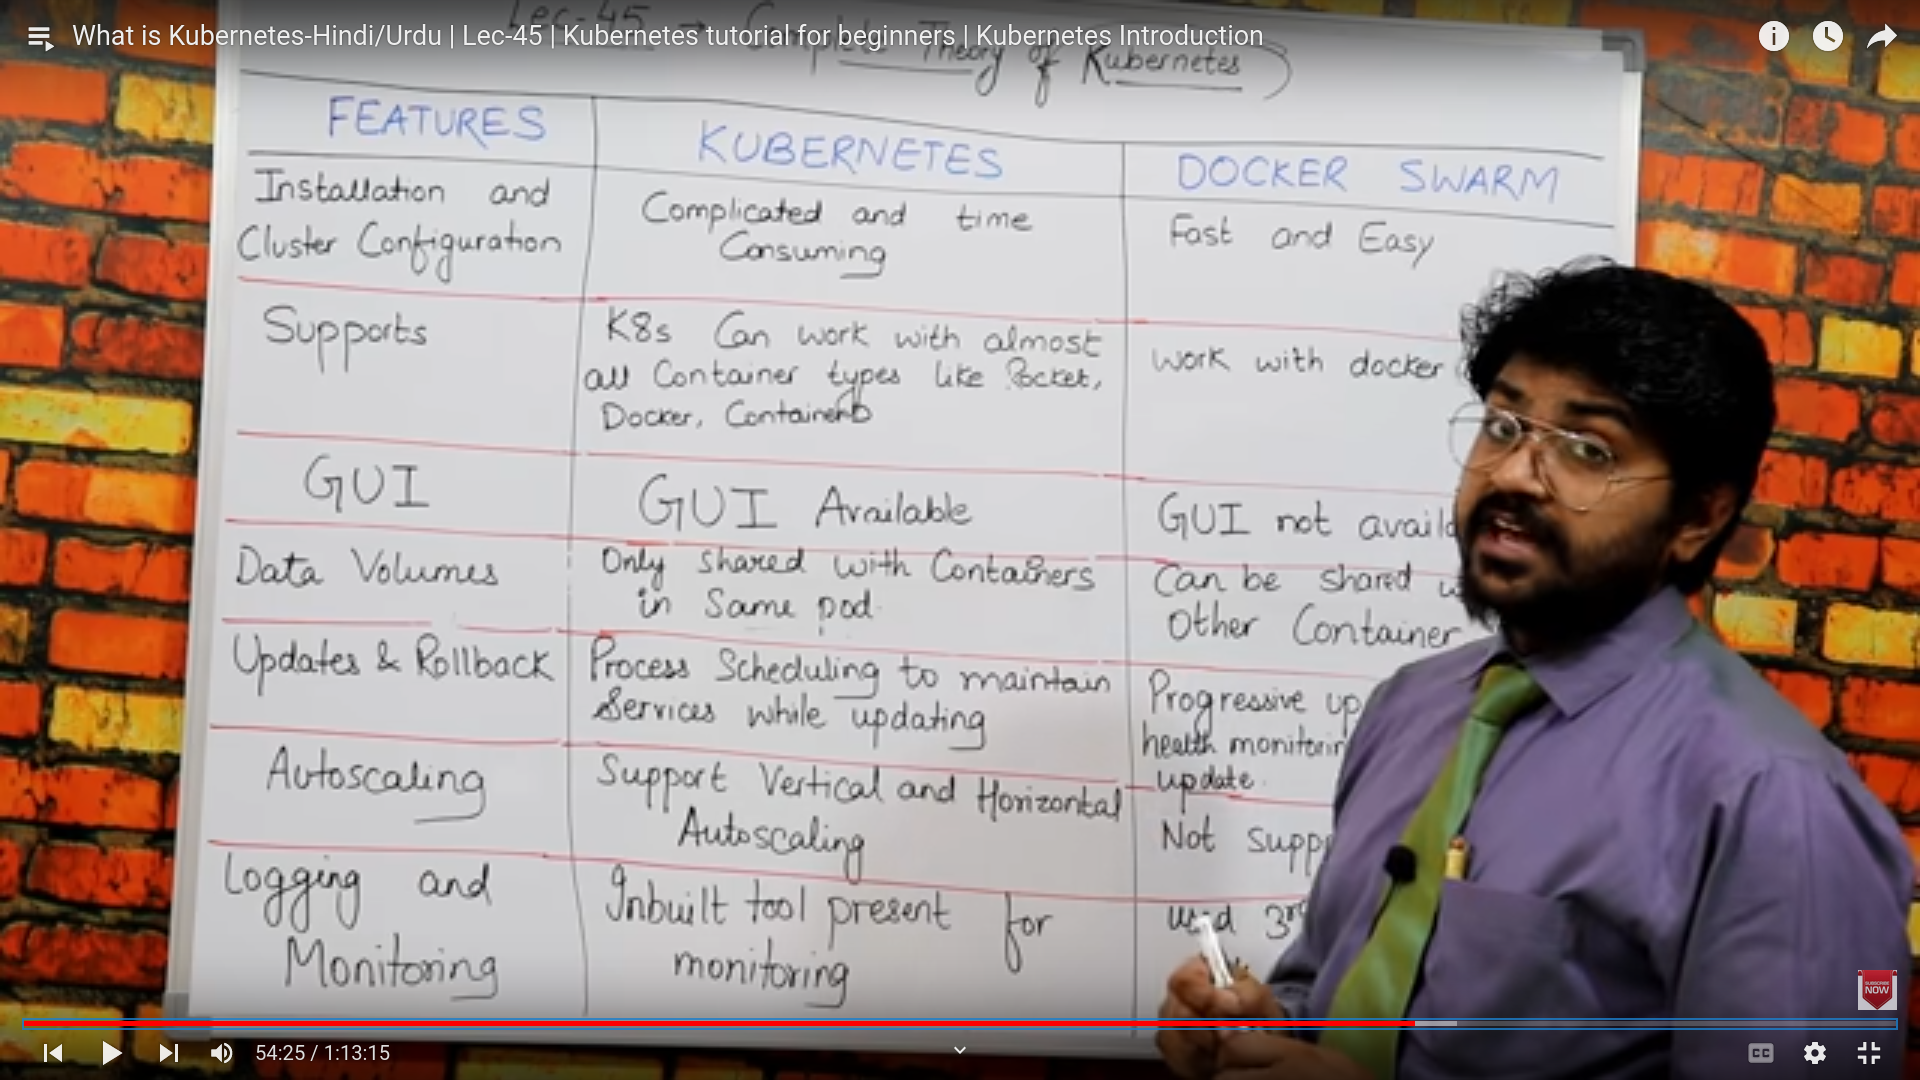 What is Kubernetes-Hindi/Urdu | Lec-45 | Kubernetes tutorial for beginners | Kubernetes Introduction
Lec-45 → Complete Theory of Kubernetes
FEATURES
KUBERNETES
DOCKER SWARM
Installation and
Cluster Configuration
Complicated and time
Consuming
Fast and Easy
Supports
K8s Can work with almost
all Container types like Rocket,
Docker, ContainerD
work with docker
GUI
GUI Available
GUI not availa
Data Volumes
Only shared with Containers
in Same pod.
Can be shared w
Other Container
Updates & Rollback
Process Scheduling to maintain
Services while updating
Progressive up
health monitorin
update.
Autoscaling
Support Vertical and Horizontal
Autoscaling
Not supp
Logging and
Monitoring
Inbuilt tool present for
monitoring
used 3r
SUBSCRIBE
NOW
54:25 / 1:13:15
CC